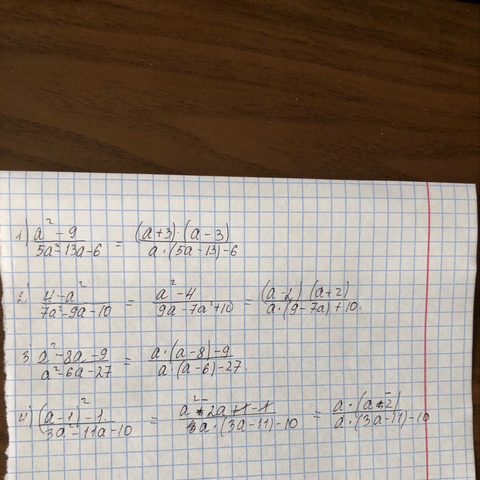 1) (a² - 9)/(5a² - 13a - 6) = ((a+3)·(a-3))/(a·(5a-13)-6)
2) (4-a²)/(7a²-9a-10) = (a²-4)/(9a-7a²+10) = ((a-2)(a+2))/(a·(9-7a)+10)
3) (a²-8a-9)/(a²-6a-27) = (a·(a-8)-9)/(a·(a-6)-27).
4) ((a-1)²-1)/(3a²-11a-10) = (a²-2a+1-1)/(a·(3a-11)-10) = (a·(a-2))/(a·(3a-11)-10)